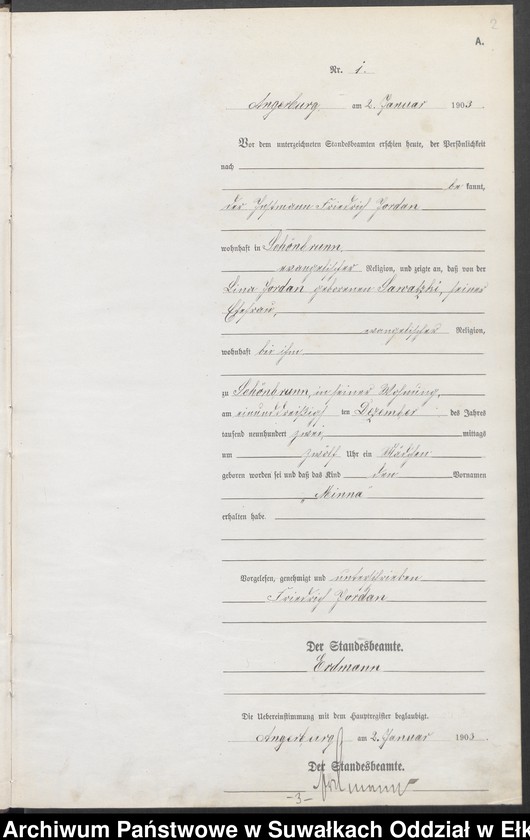 2
A.
Nr. 1.
Angerburg am 2. Januar 1903.
Vor dem unterzeichneten Standesbeamten erschien heute, der Persönlichkeit
nach
be kannt,
der Instmann Friedrich Jordan
wohnhaft in Schönbrunn
evangelischer Religion, und zeigte an, daß von der
Lina Jordan geborenen Sawatzki, seiner
Ehefrau,
evangelischer Religion,
wohnhaft bei ihm
zu Schönbrunn, in seiner Wohnung,
am einunddreißigsten Dezember des Jahres
tausend neunhundert zwei, mittags
um zwölf Uhr ein Mädchen
geboren worden sei und daß das Kind den Vornamen
„Minna"
erhalten habe
Vorgelesen, genehmigt und unterschrieben
Friedrich Jordan
Der Standesbeamte.
Erdmann
Die Uebereinstimmung mit dem Hauptregister beglaubigt.
Angerburg am 2. Januar 1903
Der Standesbeamte.
-3-
Archiwum Państwowe w Suwałkach Oddział w Ełk